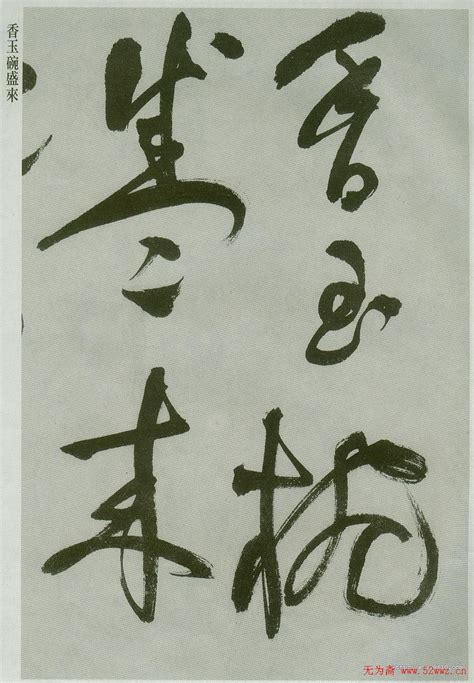 香玉碗盛來
香玉椀
盛来
无为斋 www.52wwz.cn